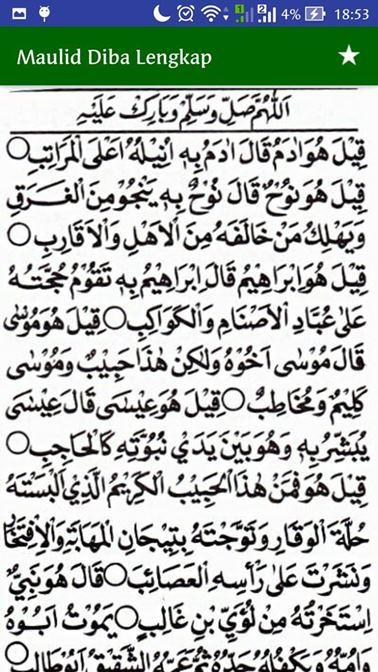 4% 18:53
Maulid Diba Lengkap
اَللّٰهُمَّ صَلِّ وَسَلِّمْ وَبَارِكْ عَلَيْهِ
قِيْلَ هُوَ اٰدَمُ قَالَ اٰدَمُ بِهِ اُنِيْلُهُ اَعْلَى الْمَرَاتِبِ○
قِيْلَ هُوَ نُوْحٌ قَالَ نُوْحٌ بِهِ يَنْجُوْ مِنَ الْغَرَقِ
وَيَهْلِكُ مَنْ خَالَفَهُ مِنَ الْاَهْلِ وَالْاَقَارِبِ○
قِيْلَ هُوَ اِبْرَاهِيْمُ قَالَ اِبْرَاهِيْمُ بِهِ تَقُوْمُ حُجَّتُهُ
عَلٰى عُبَّادِ الْاَصْنَامِ وَالْكَوَاكِبِ○ قِيْلَ هُوَ مُوْسٰى
قَالَ مُوْسٰى اَخُوْهُ وَلٰكِنْ هٰذَا حَبِيْبٌ وَمُوْسٰى
كَلِيْمٌ وَمُخَاطِبٌ○ قِيْلَ هُوَ عِيْسٰى قَالَ عِيْسٰى
يُبَشِّرُ بِهِ وَهُوَ بَيْنَ يَدَيْ نُبُوَّتِهِ كَالْحَاجِبِ○
قِيْلَ هُوَ فَمَنْ هٰذَا الْحَبِيْبُ الْكَرِيْمُ الَّذِيْ اَلْبَسْتَهُ
حُلَّةَ الْوَقَارِ وَتَوَّجْتَهُ بِتِيْجَانِ الْمَهَابَةِ وَالْاِفْتِخَارِ
وَنَشَرْتَ عَلٰى رَأْسِهِ الْعَصَائِبَ○ قَالَ هُوَ نَبِيٌّ
اِسْتَخَرْتُهُ مِنْ لُؤَيِّ بْنِ غَالِبٍ○ يَمُوْتُ اَبُوْهُ
وَاُمُّهُ وَيَكْفُلُهُ جَدُّهُ ثُمَّ عَمُّهُ الشَّقِيْقُ اَبُوْ طَالِبٍ○